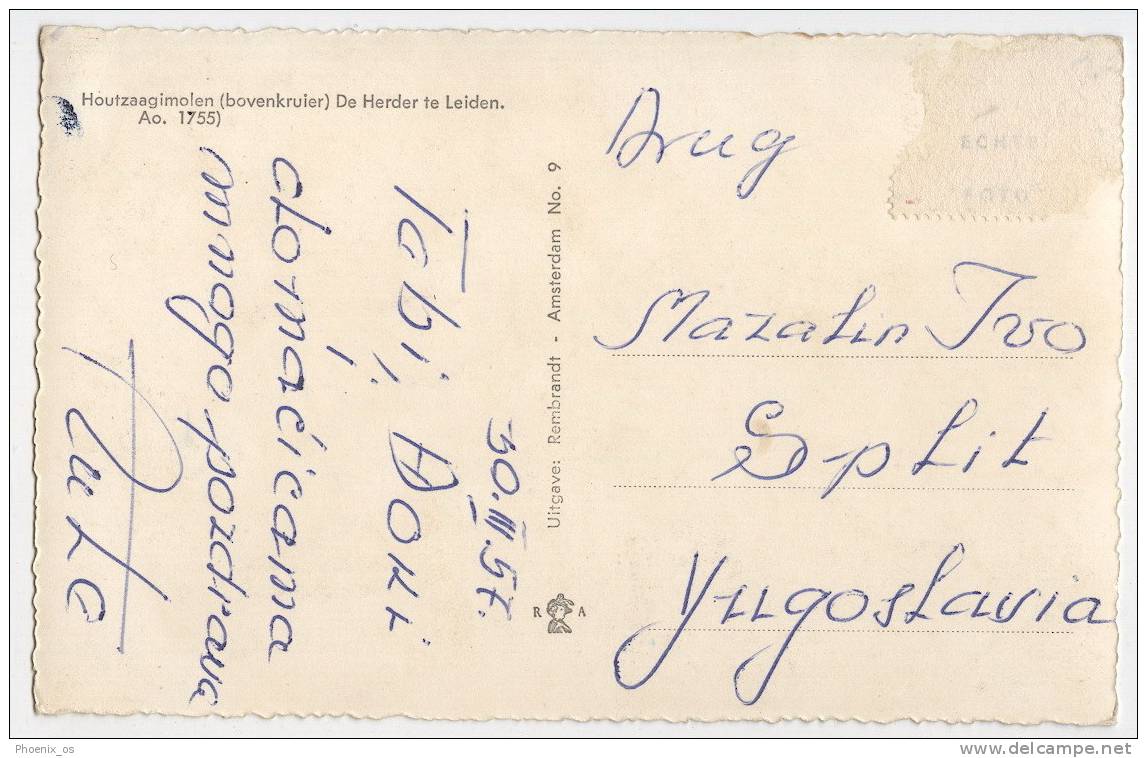 Houtzaagimolen (bovenkruier) De Herder te Leiden.
Ao. 1755)
30.III.57.
Tebi, Doki
i
domaćicama
mnogo pozdrava
Uitgave: Rembrandt - Amsterdam No. 9
R A
ECHTE
FOTO
Drug
Mazalin Ivo
Split
Yugoslavia
Phoenix_os
delcampe.net